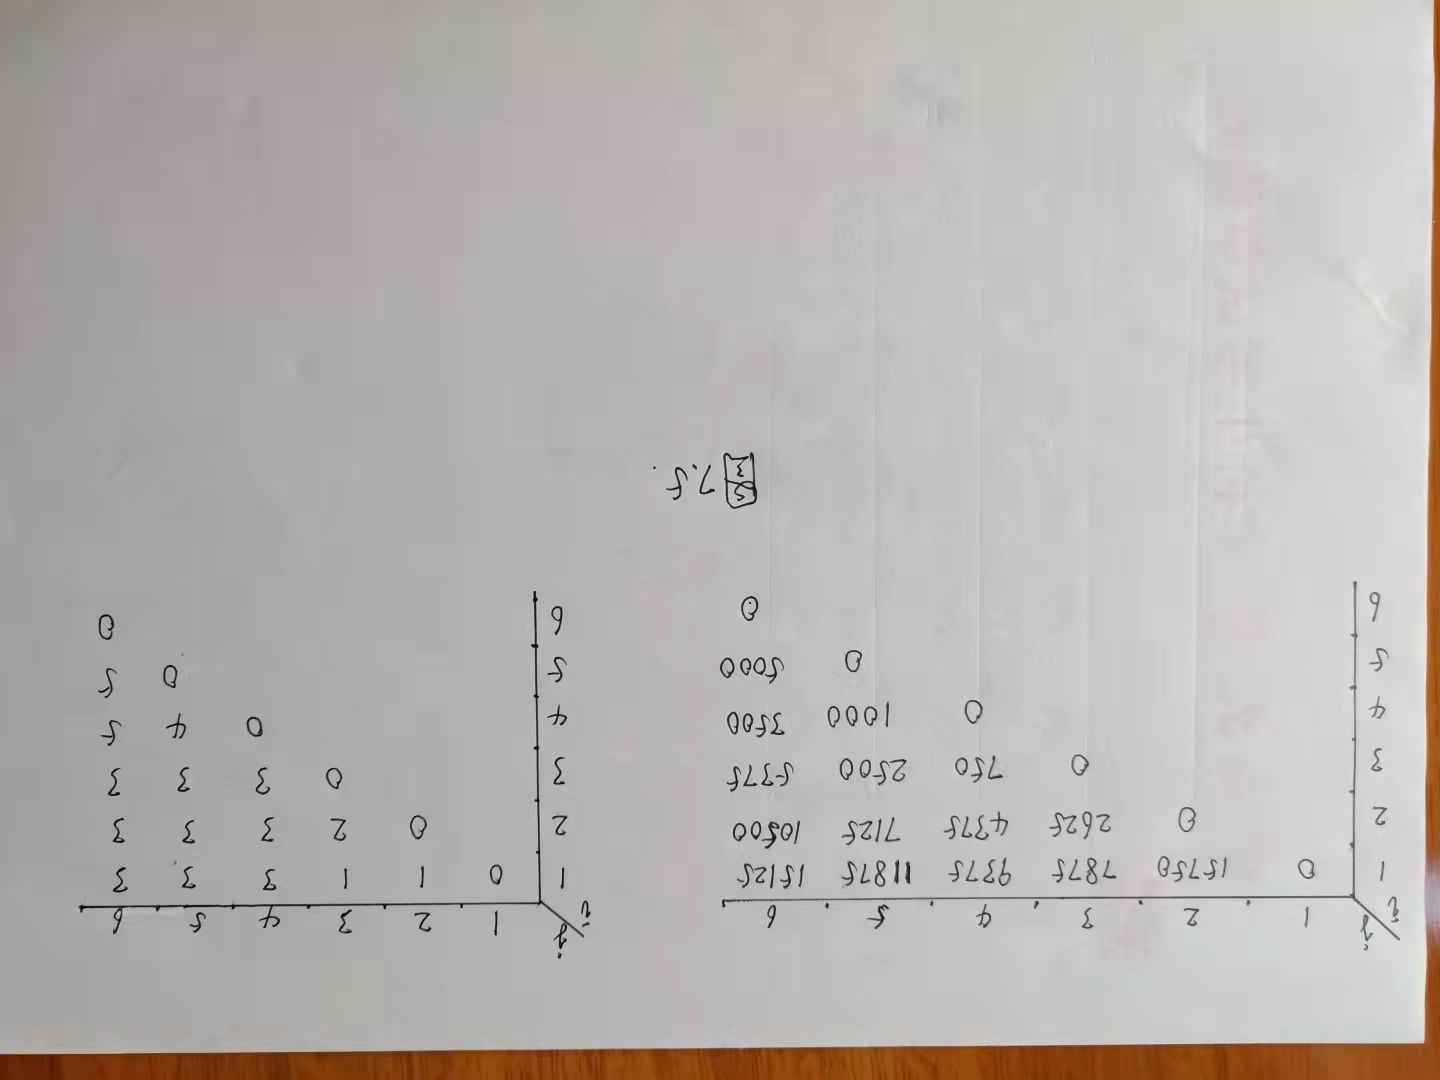 j
i 1 2 3 4 5 6
1 0 15750 7875 9375 11875 15125
2 0 2625 4375 7125 10500
3 0 750 2500 5375
4 0 1000 3500
5 0 5000
6 0
j
i 1 2 3 4 5 6
1 0 1 1 3 3 3
2 0 2 3 3 3
3 0 3 3 3
4 0 4 5
5 0 5
6 0
7.5.